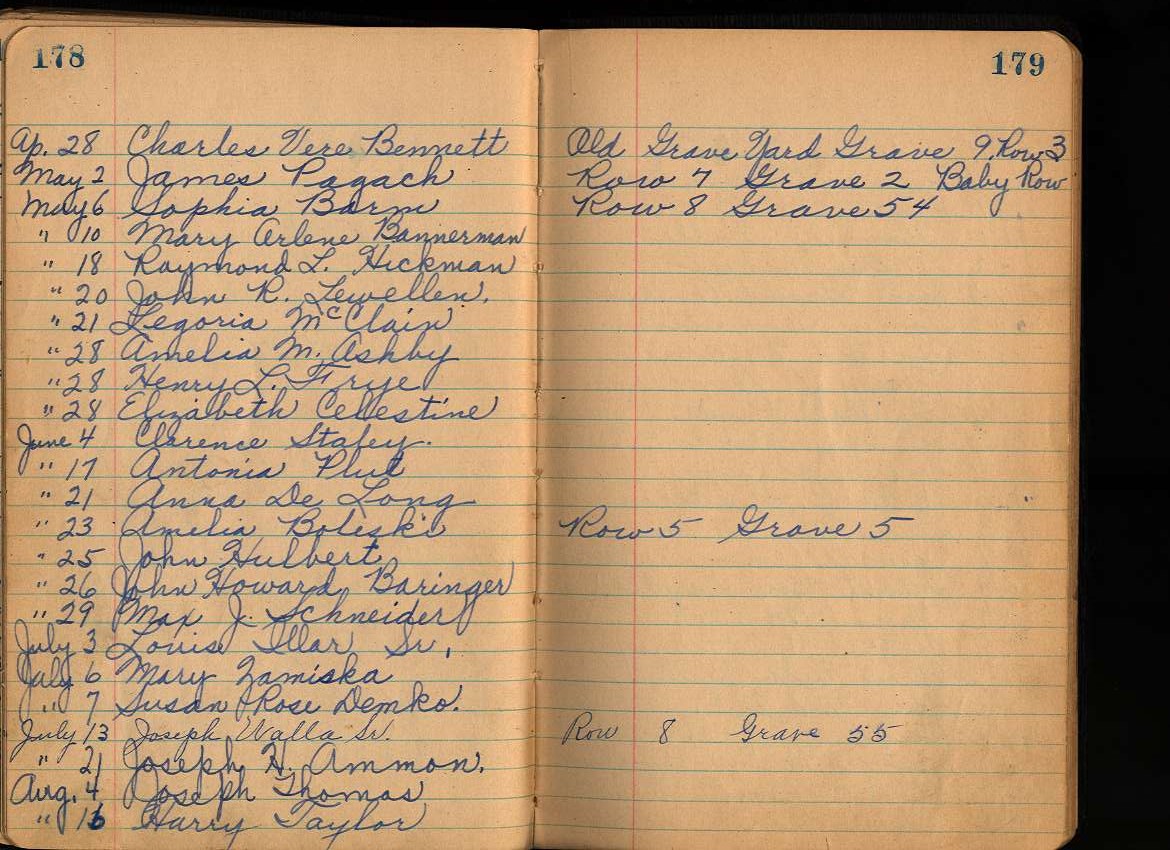 178
179
Ap. 28 Charles Vere Bennett Old Grave Yard Grave 9, Row 3
May 2 James Pagach Row 7 Grave 2 Baby Row
May 6 Sophia Barm Row 8 Grave 54
" 10 Mary Arlene Bannerman
" 18 Raymond L. Hickman
" 20 John R. Lewellen.
" 21 Legoria McClain
" 28 Amelia M. Ashby
" 28 Henry L. Frye
" 28 Elizabeth Celestine
June 4 Clarence Stafey.
" 17 Antonia Plut
" 21 Anna De Long
" 23 Amelia Boleski Row 5 Grave 5
" 25 John Hulbert
" 26 John Howard Baringer
" 29 Max J. Schneider
July 3 Louise Illar Sr.
July 6 Mary Zamiska
" 7 Susan Rose Demko.
July 13 Joseph Walla Sr. Row 8 Grave 55
" 21 Joseph H. Ammon.
Aug. 4 Joseph Thomas
" 16 Harry Taylor